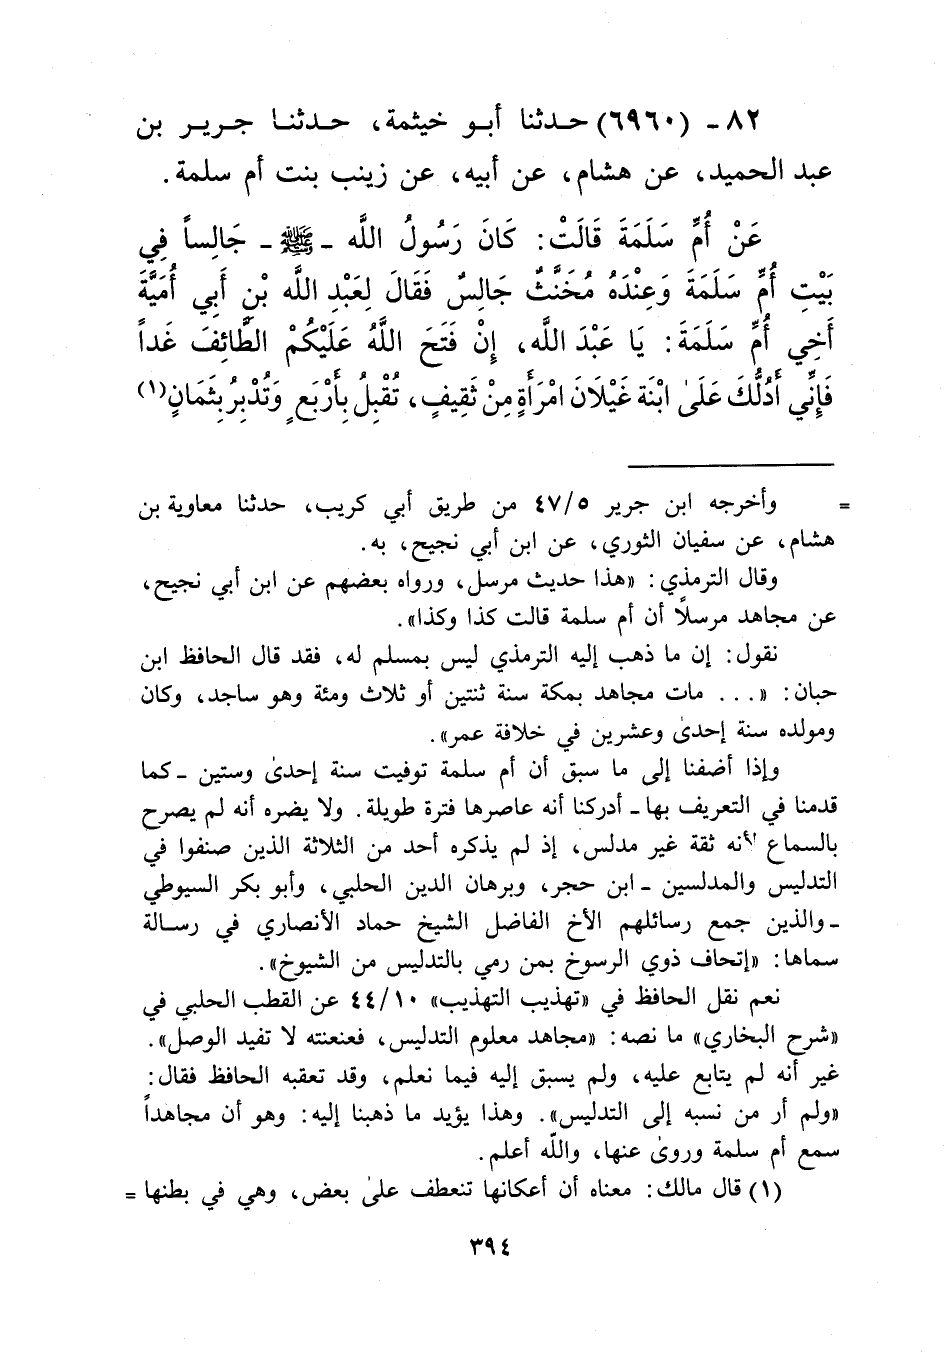 ٨٢ - (٦٩٦٠) حـدثنا أبـو خيثمة، حـدثنـا جـريـر بن
عبد الحميد، عن هشام، عن أبيه، عن زينب بنت أم سلمة.
عَنْ أُمِّ سَلَمَةَ قَالَتْ: كَانَ رَسُولُ اللَّه - ﷺ - جَالِساً فِي
بَيْتِ أُمِّ سَلَمَةَ وَعِنْدَهُ مُخَنَّثٌ جَالِسٌ فَقَالَ لِعَبْدِ اللَّه بْنِ أَبِي أُمَيَّةَ
أَخِي أُمِّ سَلَمَةَ: يَا عَبْدَ اللَّه، إِنْ فَتَحَ اللَّهُ عَلَيْكُمْ الطَّائِفَ غَداً
فَإِنِّي أَدُلُّكَ عَلَىٰ ابْنَة غَيْلَانَ امْرَأَةٍ مِنْ ثَقِيفٍ، تُقْبِلُ بِأَرْبَعٍ وَتُدْبِرُ بِثَمَانٍ(١)
= وأخرجه ابن جرير ٤٧/٥ من طريق أبي كريب، حدثنا معاوية بن
هشام، عن سفيان الثوري، عن ابن أبي نجيح، به.
وقال الترمذي: «هذا حديث مرسل، ورواه بعضهم عن ابن أبي نجيح،
عن مجاهد مرسلاً أن أم سلمة قالت كذا وكذا».
نقول: إن ما ذهب إليه الترمذي ليس بمسلم له، فقد قال الحافظ ابن
حبان: «... مات مجاهد بمكة سنة ثنتين أو ثلاث ومئة وهو ساجد، وكان
ومولده سنة إحدىٰ وعشرين في خلافة عمر».
وإذا أضفنا إلى ما سبق أن أم سلمة توفيت سنة إحدىٰ وستين - كما
قدمنا في التعريف بها - أدركنا أنه عاصرها فترة طويلة. ولا يضره أنه لم يصرح
بالسماع لأنه ثقة غير مدلس، إذ لم يذكره أحد من الثلاثة الذين صنفوا في
التدليس والمدلسين - ابن حجر، وبرهان الدين الحلبي، وأبو بكر السيوطي
- والذين جمع رسائلهم الأخ الفاضل الشيخ حماد الأنصاري في رسـالة
سماها: «إتحاف ذوي الرسوخ بمن رمي بالتدليس من الشيوخ».
نعم نقل الحافظ في «تهذيب التهذيب» ٤٤/١٠ عن القطب الحلبي في
«شرح البخاري» ما نصه: «مجاهد معلوم التدليس، فعنعنته لا تفيد الوصل».
غير أنه لم يتابع عليه، ولم يسبق إليه فيما نعلم، وقد تعقبه الحافظ فقال:
«ولم أر من نسبه إلى التدليس». وهذا يؤيد ما ذهبنا إليه: وهو أن مجاهداً
سمع أم سلمة وروىٰ عنها، واللَّه أعلم.
(١) قال مالك: معناه أن أعكانها تنعطف علىٰ بعض، وهي في بطنها =
٣٩٤